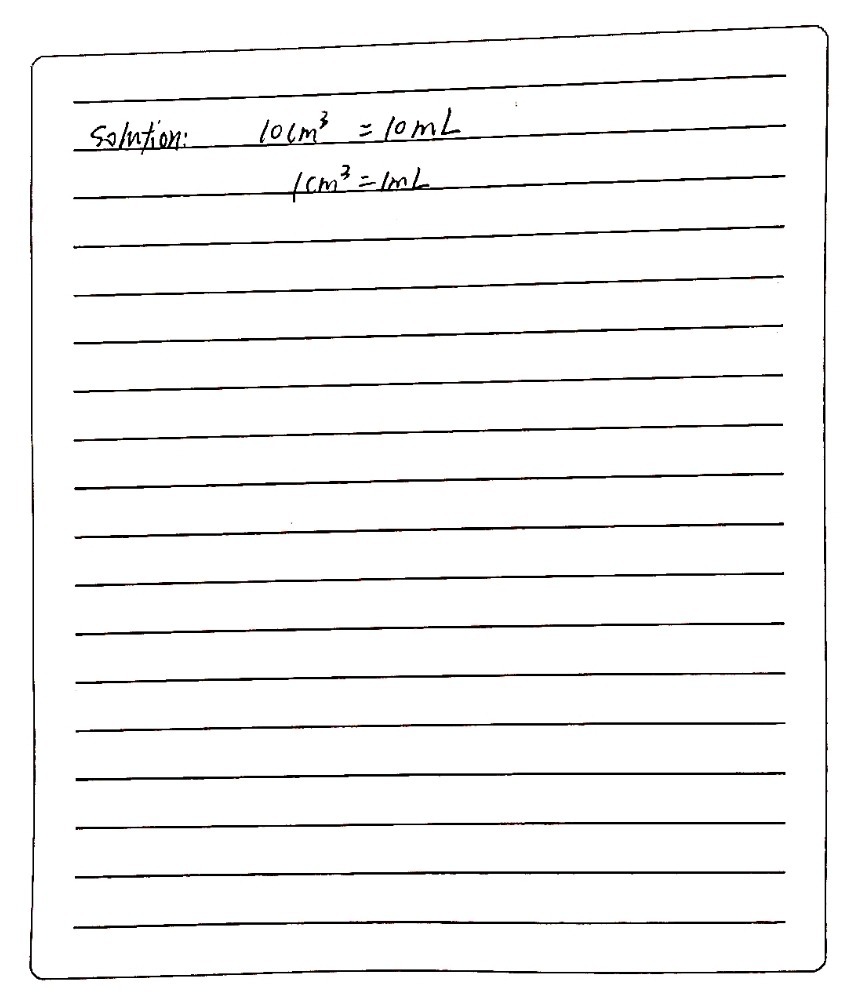 Solution: 10cm³ = 10mL
1cm³ = 1mL